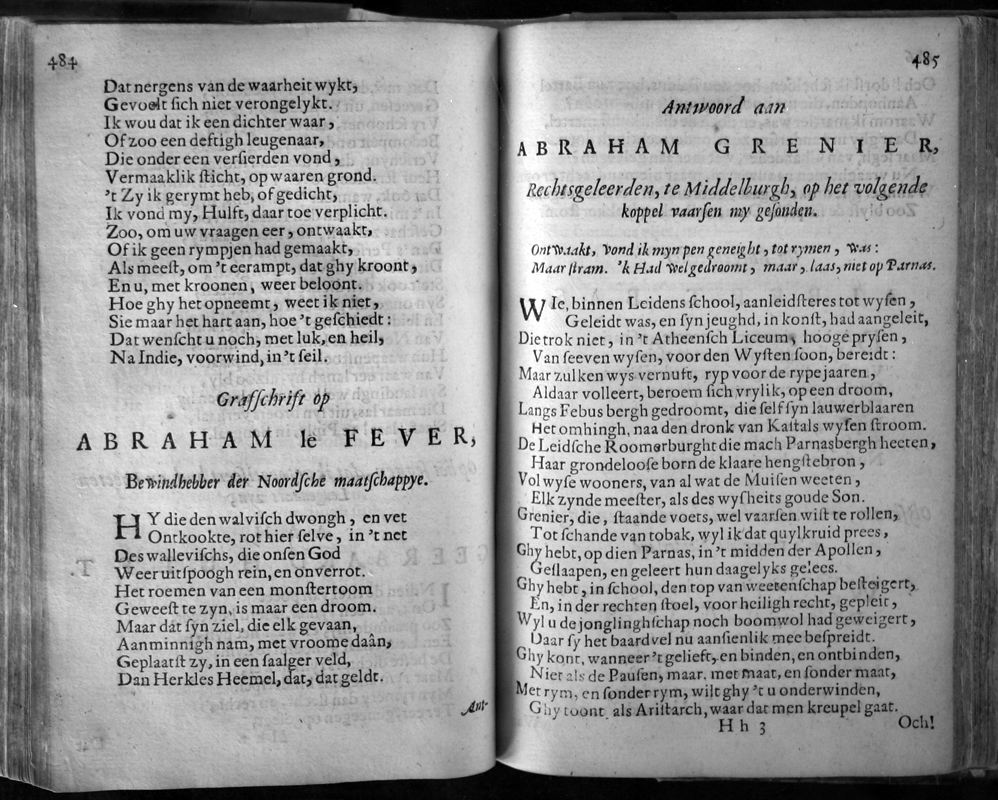 484
Dat nergens van de waarheit wykt,
Gevoelt ſich niet verongelykt.
Ik wou dat ik een dichter waar,
Of zoo een deftigh leugenaar,
Die onder een verſierden vond,
Vermaaklik ſticht, op waaren grond.
't Zy ik gerymt heb, of gedicht,
Ik vond my, Hulft, daar toe verplicht.
Zoo, om uw vraagen eer, ontwaakt,
Of ik geen rympjen had gemaakt,
Als meeſt, om 't eerampt, dat ghy kroont,
En u, met kroonen, weer beloont.
Hoe ghy het opneemt, weet ik niet,
Sie maar het hart aan, hoe 't geſchiedt:
Dat wenſcht u noch, met luk, en heil,
Na Indie, voorwind, in 't ſeil.
Grafſchrift op
ABRAHAM le FEVER,
Bewindhebber der Noordſche maatſchappye.
HY die den walviſch dwongh, en vet
Ontkookte, rot hier ſelve, in 't net
Des walleviſchs, die onſen God
Weer uitſpoogh rein, en onverrot.
Het roemen van een monſtertoom
Geweeſt te zyn, is maar een droom.
Maar dat ſyn ziel, die elk gevaan,
Aanminnigh nam, met vroome daân,
Geplaatſt zy, in een ſaalger veld,
Dan Herkles Heemel, dat, dat geldt.
Ant-
485
Antwoord aan
ABRAHAM GRENIER,
Rechtsgeleerden, te Middelburgh, op het volgende
koppel vaarſen my geſonden.
Ontwaakt, vond ik myn pen geneight, tot rymen, was:
Maar ſtram. 'k Had welgedroomt, maar, laas, niet op Parnas.
WIe, binnen Leidens ſchool, aanleidſteres tot wyſen,
Geleidt was, en ſyn jeughd, in konſt, had aangeleit,
Die trok niet, in 't Atheenſch Liceum, hooge pryſen,
Van ſeeven wyſen, voor den Wyſten ſoon, bereidt:
Maar zulken wys vernuft, ryp voor de rype jaaren,
Aldaar volleert, beroem ſich vrylik, op een droom,
Langs Febus bergh gedroomt, die ſelf ſyn lauwerblaaren
Het omhingh, naa den dronk van Kaſtals wyſen ſtroom.
De Leidſche Roomerburght die mach Parnasbergh heeten,
Haar grondelooſe born de klaare hengſtebron,
Vol wyſe wooners, van al wat de Muiſen weeten,
Elk zynde meeſter, als des wyſheits goude Son.
Grenier, die, ſtaande voets, wel vaarſen wiſt te rollen,
Tot ſchande van tobak, wyl ik dat quylkruid prees,
Ghy hebt, op dien Parnas, in 't midden der Apollen,
Geſlaapen, en geleert hun daagelyks gelees.
Ghy hebt, in ſchool, den top van weetenſchap beſteigert,
En, in der rechten ſtoel, voor heiligh recht, gepleit,
Wyl u de jonglinghſchap noch boomwol had geweigert,
Daar ſy het baardvel nu aanſienlik mee beſpreidt.
Ghy kont, wanneer 't gelieft, en binden, en ontbinden,
Niet als de Pauſen, maar, met maat, en ſonder maat,
Met rym, en ſonder rym, wilt ghy 't u onderwinden,
Ghy toont, als Ariſtarch, waar dat men kreupel gaat.
Hh 3
Och!